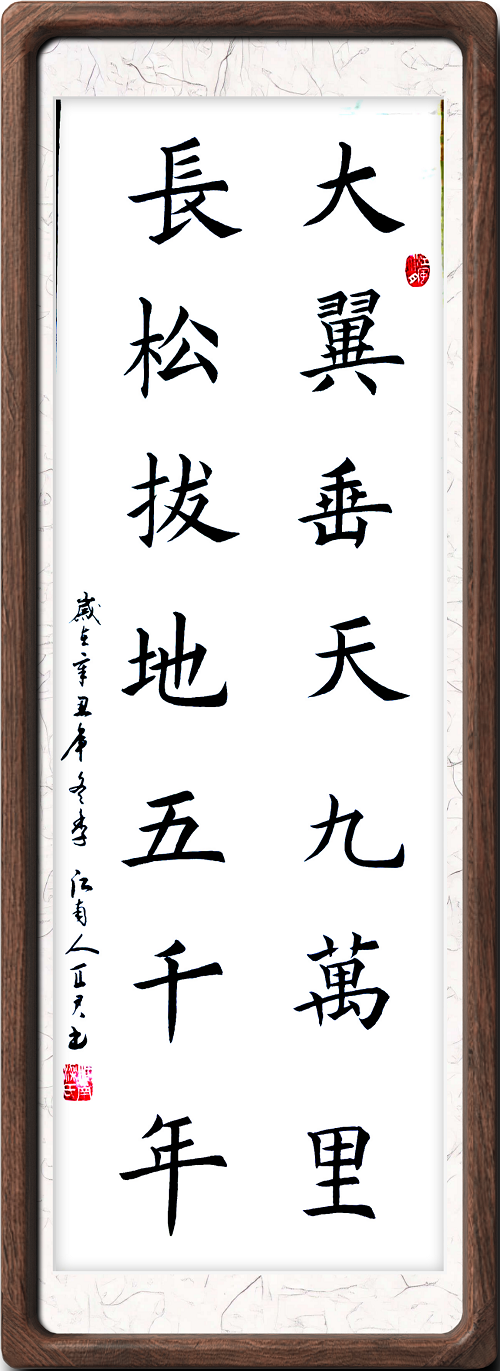 大翼垂天九萬里
長松拔地五千年
歲在辛丑年冬季 江南人正君书